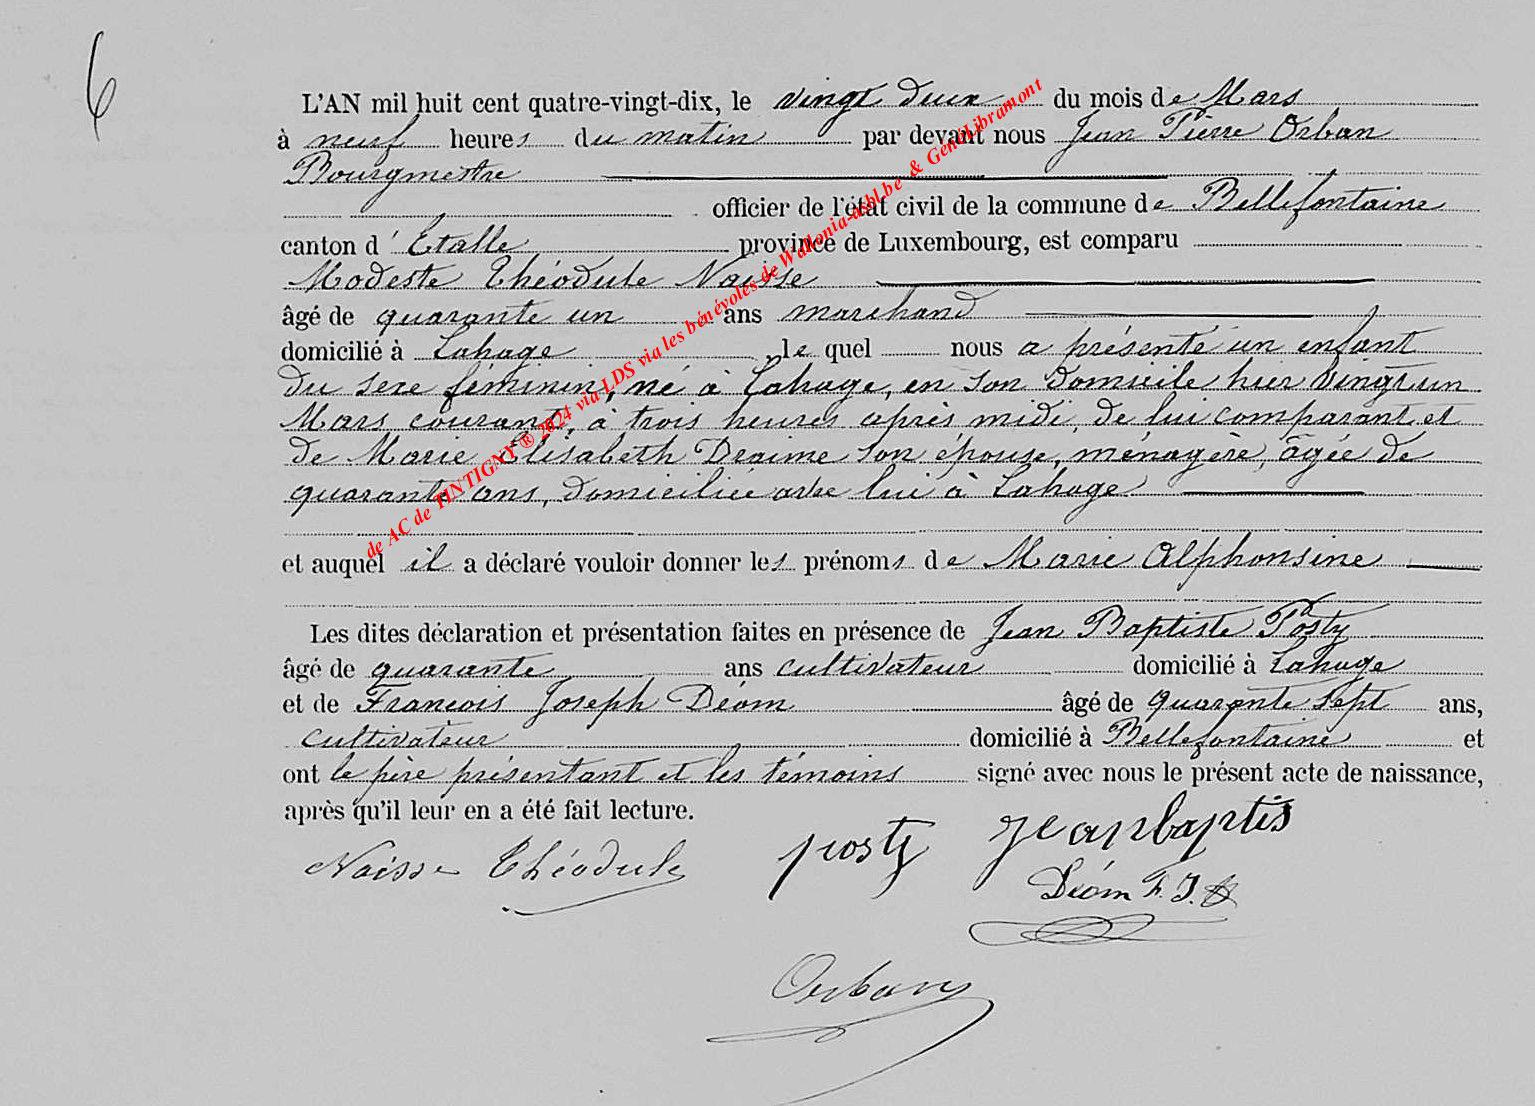 6
L'AN mil huit cent quatre-vingt-dix, le vingt deux du mois de Mars
à neuf heures du matin par devant nous Jean Pierre Orban
Bourgmestre
officier de l'état civil de la commune de Bellefontaine
canton d' Etalle province de Luxembourg, est comparu
Modeste Théodule Naisse
âgé de quarante un ans marchand
domicilié à Lahage le quel nous a présenté un enfant
du sexe féminin, né à Lahage, en son domicile hier vingt un
Mars courant, à trois heures après midi, de lui comparant et
de Marie Elisabeth Draime son épouse, ménagère, âgée de
quarante ans, domiciliée avec lui à Lahage
et auquel il a déclaré vouloir donner les prénoms de Marie Alphonsine
Les dites déclaration et présentation faites en présence de Jean Baptiste Posty
âgé de quarante ans cultivateur domicilié à Lahage
et de Francois Joseph Déom âgé de quarante sept ans,
cultivateur domicilié à Bellefontaine et
ont le père présentant et les témoins signé avec nous le présent acte de naissance,
après qu'il leur en a été fait lecture.
Naisse Théodule posty jeanbaptis
Déom F. J.
Orban
de AC de TINTIGNY ® 2024 via LDS via les bénévoles de Wallonia-asbl.be & GenéLibramont